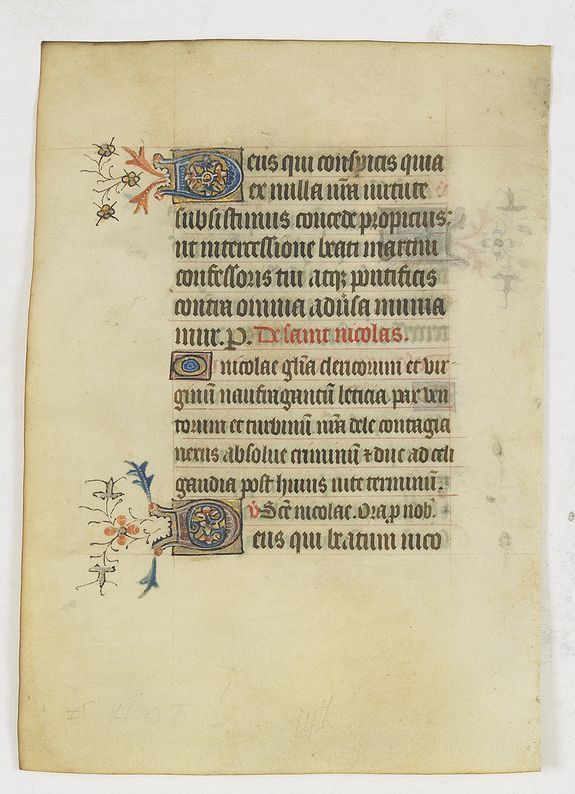 Deus qui conspicis quia
ex nulla nr̃a uirtute
subsistimus concede propicius
ut intercessione beati martini
confessoris tui atqꝫ pontificis
contra omnia aduˀsa munia
mur. P. De saint nicolas.
O nicolae glĩa clericorum et vir
ginũ naufragantũ leticia pax ven
torum et turbinũ nr̃a dele contagia
nexus absolue criminũ ⁊ duc ad celi
gaudia post huius uite terminũ.
v̉ Sc̃e nicolae. Ora p nob̉.
Deus qui beatum nico